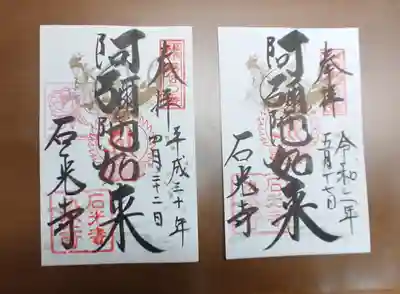 奉拝
平成三十年
四月二十二日
阿彌陀如来
石光寺
奉拝
令和二年
五月十七日
阿彌陀如来
石光寺